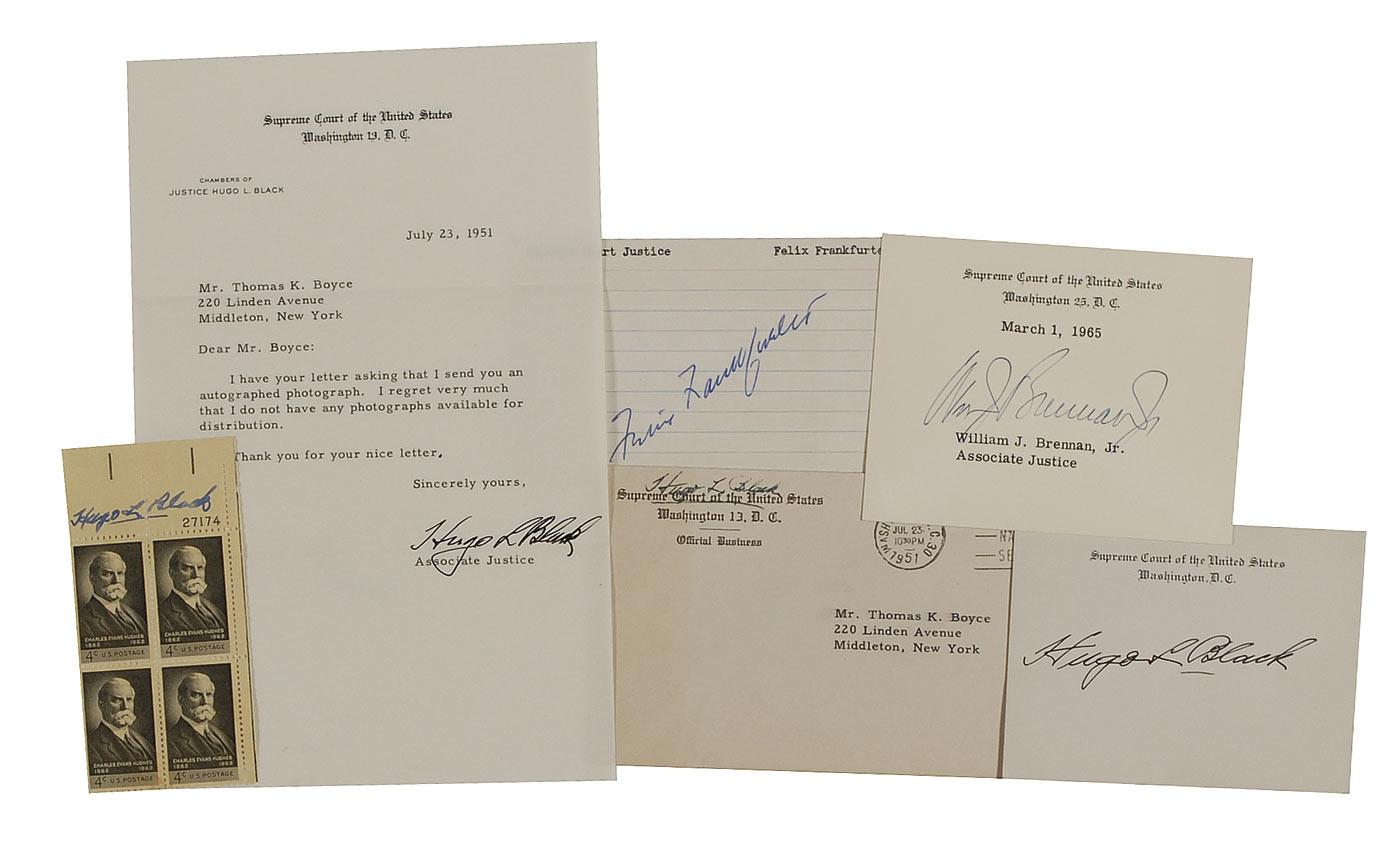 Supreme Court of the United States
Washington 13, D. C.
CHAMBERS OF
JUSTICE HUGO L. BLACK
July 23, 1951
Mr. Thomas K. Boyce
220 Linden Avenue
Middleton, New York
Dear Mr. Boyce:
I have your letter asking that I send you an
autographed photograph. I regret very much
that I do not have any photographs available for
distribution.
Thank you for your nice letter.
Sincerely yours,
Hugo L Black
Associate Justice
Hugo L Black
27174
CHARLES EVANS HUGHES
1862 1962
4¢ U.S. POSTAGE
CHARLES EVANS HUGHES
1862 1962
4¢ U.S. POSTAGE
CHARLES EVANS HUGHES
1862 1962
4¢ U.S. POSTAGE
CHARLES EVANS HUGHES
1862 1962
4¢ U.S. POSTAGE
rt Justice Felix Frankfurte
Felix Frankfurter
Supreme Court of the United States
Washington 25, D. C.
March 1, 1965
Wm J Brennan Jr
William J. Brennan, Jr.
Associate Justice
Hugo L. Black
Supreme Court of the United States
Washington 13, D. C.
Official Business
WASH C. 30
JUL 23
10 30 PM
1951
NA
SE
Mr. Thomas K. Boyce
220 Linden Avenue
Middleton, New York
Supreme Court of the United States
Washington, D. C.
Hugo L Black